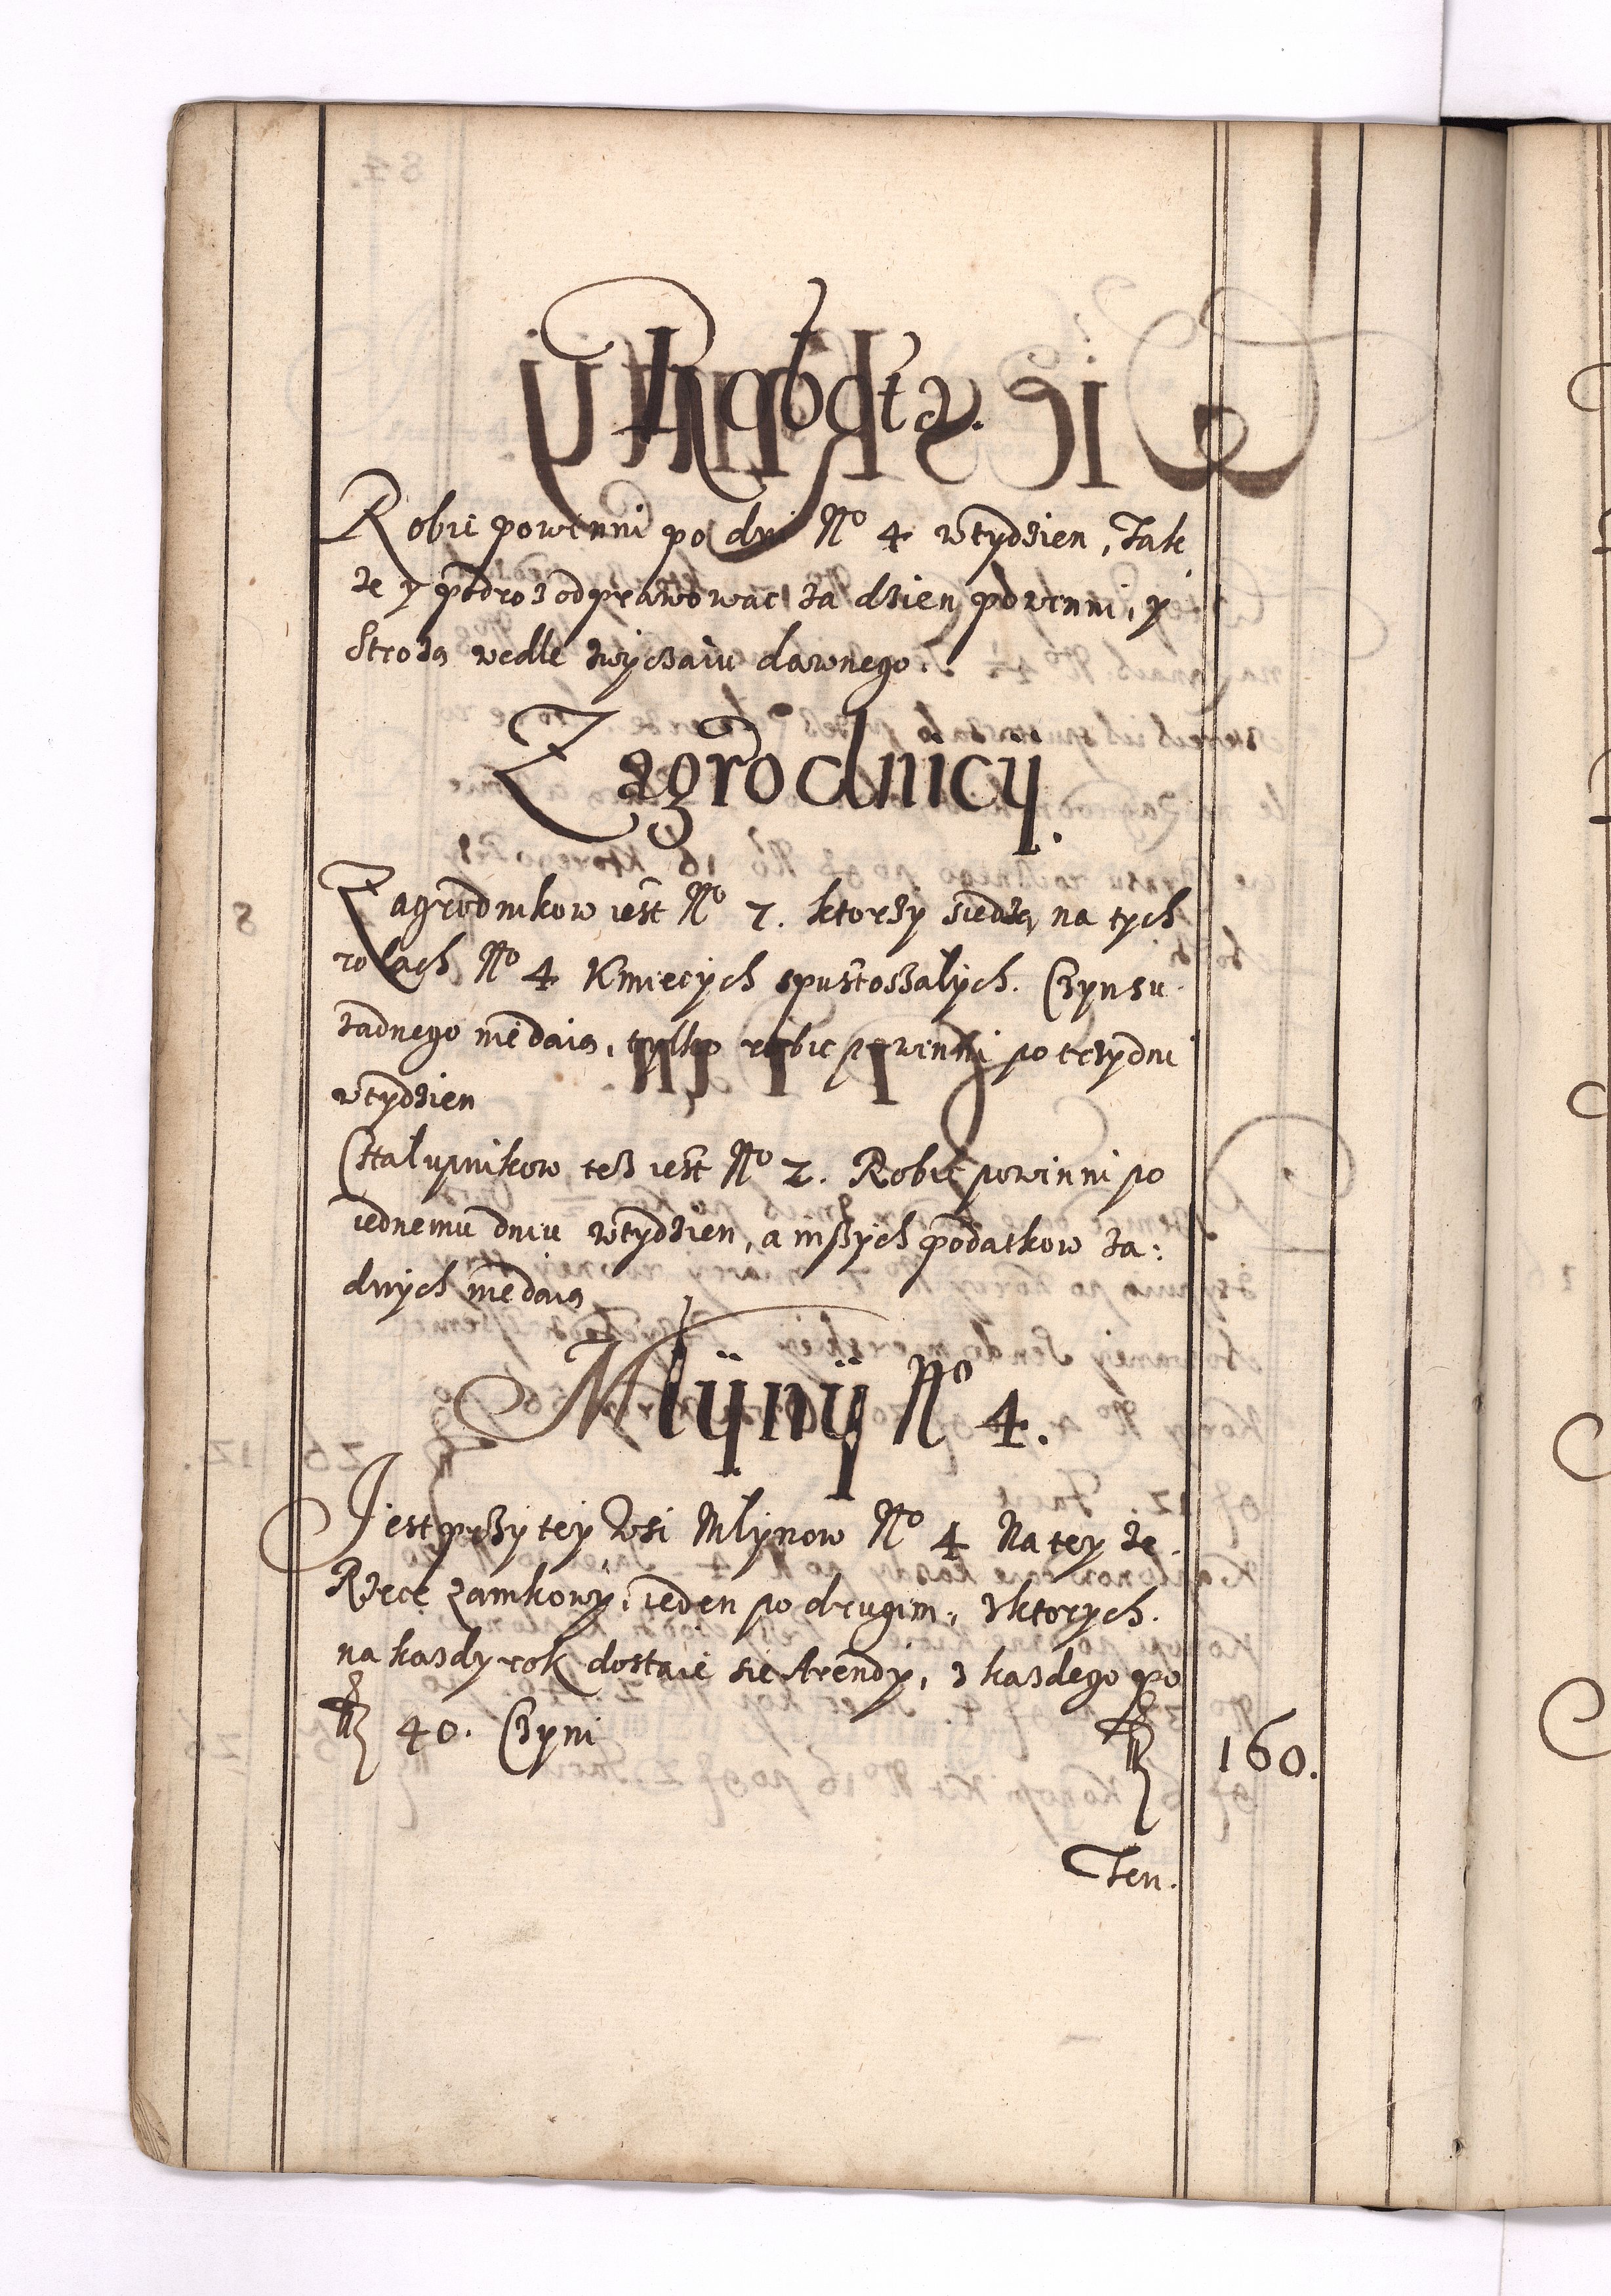 Robotą.
Robic powinni po dni No 4 wtydzien, Tak
ze y podroz odprawowac za dzien powinni, y
Stroza wedle zwyczaiu dawnego.
Zagrodnicÿ.
Zagrodnikow iest No 7. ktorzy siedzą na tych
rolach No 4 Kmiecych spustoszalych. Czynsu
zadnego niedaią, tylko robic powinni po trzy dni
wtydzien
Chalupnikow tesz iest No 2. Robic powinni po
iednemu dniu wtydzien, a inszych podatkow za:
dnych niedaią
Mlÿnÿ No 4.
Jest przy tey wsi Mlynow No 4 Na tey ze.
Rzece zamkowy, ieden po drugim, z ktorych.
na kazdy rok dostaie sie Arendy, z kazdego po
40. Czyni 160.
Ten.